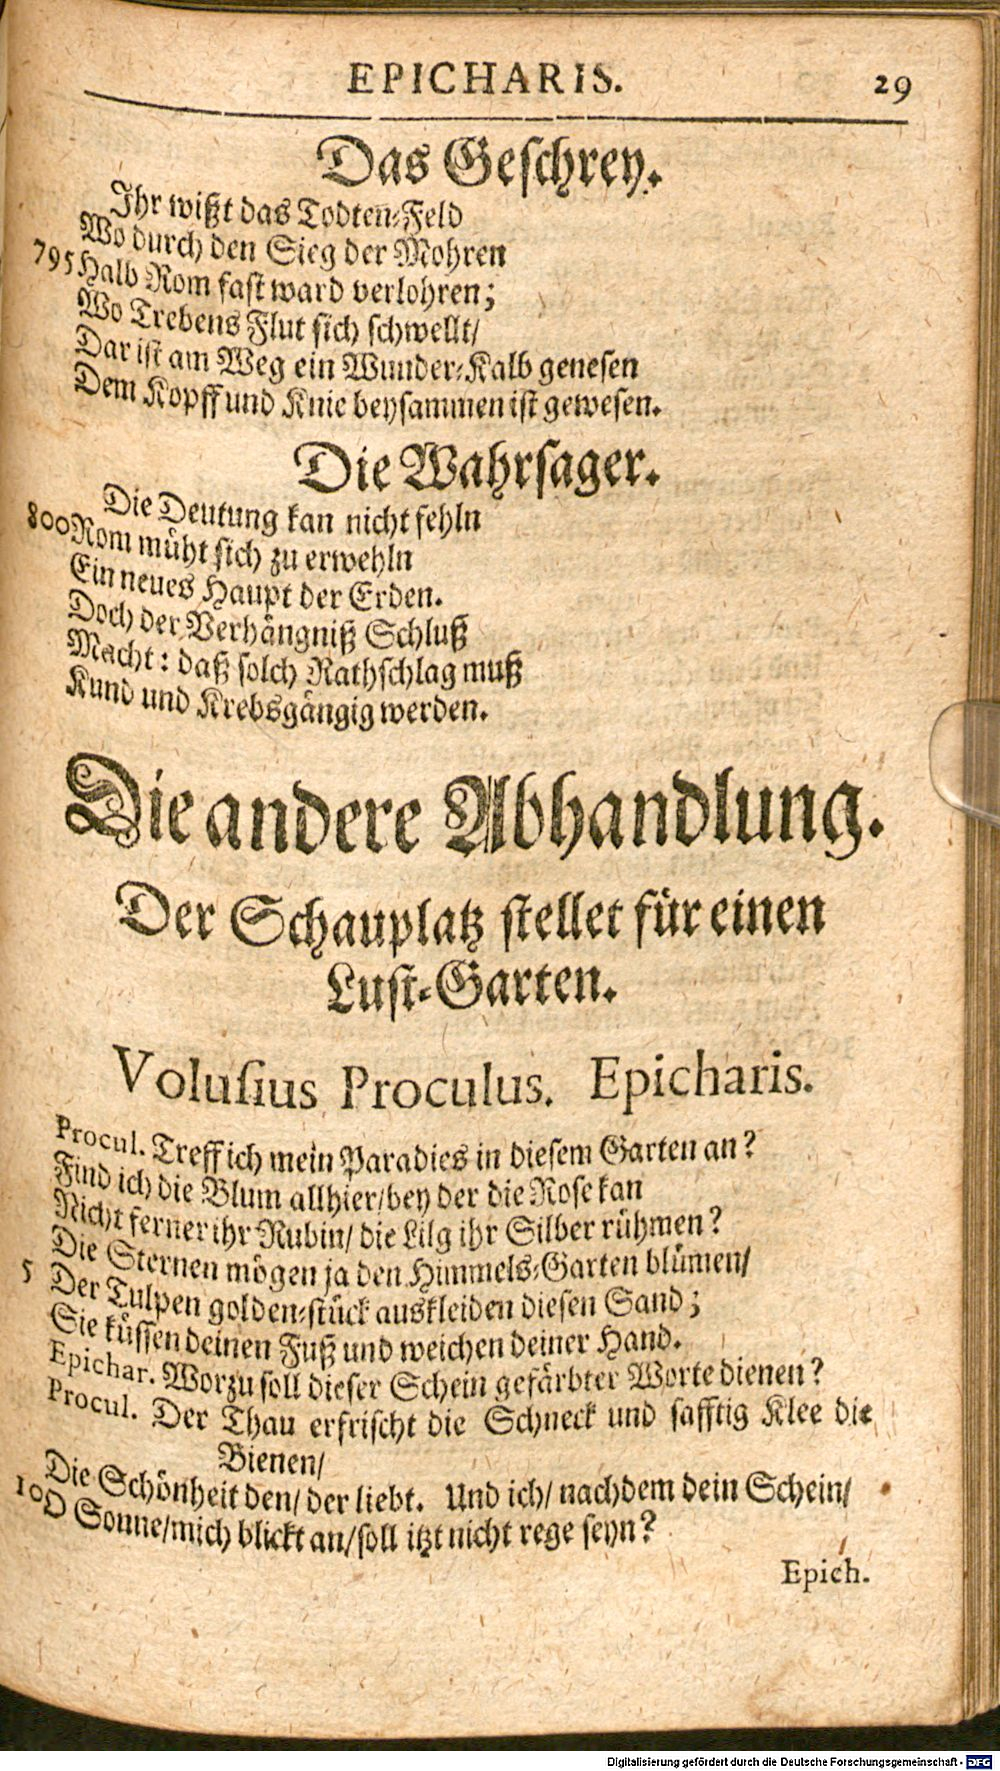 EPICHARIS. 29
Das Geſchrey.
Ihr wißt das Todten̄-Feld
Wo durch den Sieg der Mohren
795 Halb Rom faſt ward verlohren;
Wo Trebens Flut ſich ſchwellt/
Dar iſt am Weg ein Wunder-Kalb geneſen
Dem Kopff und Knie beyſammen iſt geweſen.
Die Wahrſager.
Die Deutung kan nicht fehln
800 Rom müht ſich zu erwehln
Ein neues Haupt der Erden.
Doch der Verhängniß Schluß
Macht: daß ſolch Rathſchlag muß
Kund und Krebsgängig werden.
Die andere Abhandlung.
Der Schauplatz ſtellet für einen
Luſt-Garten.
Voluſius Proculus. Epicharis.
Procul. Treff ich mein Paradies in dieſem Garten an?
Find ich die Blum allhier/ bey der die Roſe kan
Nicht ferner ihr Rubin/ die Lilg ihr Silber rühmen?
Die Sternen mögen ja den Himmels-Garten blümen/
5 Der Tulpen golden-ſtück auskleiden dieſen Sand;
Sie küſſen deinen Fuß und weichen deiner Hand.
Epichar. Worzu ſoll dieſer Schein gefärbter Worte dienen?
Procul. Der Thau erfriſcht die Schneck und ſafftig Klee die
Bienen/
Die Schönheit den/ der liebt. Und ich/ nachdem dein Schein/
10 O Sonne/ mich blickt an/ ſoll itzt nicht rege ſeyn?
Epich.
Digitalisierung gefördert durch die Deutsche Forschungsgemeinschaft - DFG